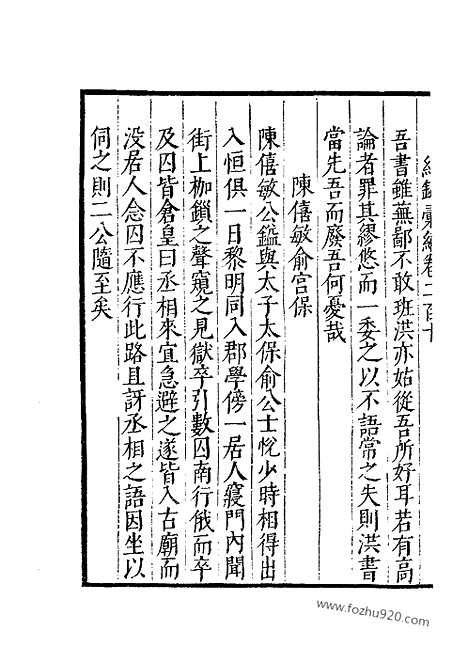 紀錄彙編卷二百十
吾書雖蕪鄙不敢班洪亦姑從吾所好耳若有高
論者罪其繆悠而一委之以不語常之失則洪書
當先吾而廢吾何憂哉
陳僖敏俞宫保
陳僖敏公鎰與太子太保俞公士恱少時相得出
入恒俱一日黎明同入郡學傍一居人寢門內聞
街上枷鎖之聲窺之見獄卒引數囚南行俄而卒
及囚皆倉皇曰丞相來宜急避之遂皆入古廟而
没居人念囚不應行此路且訝丞相之語因坐以
伺之則二公隨至矣
www.fozhu920.com